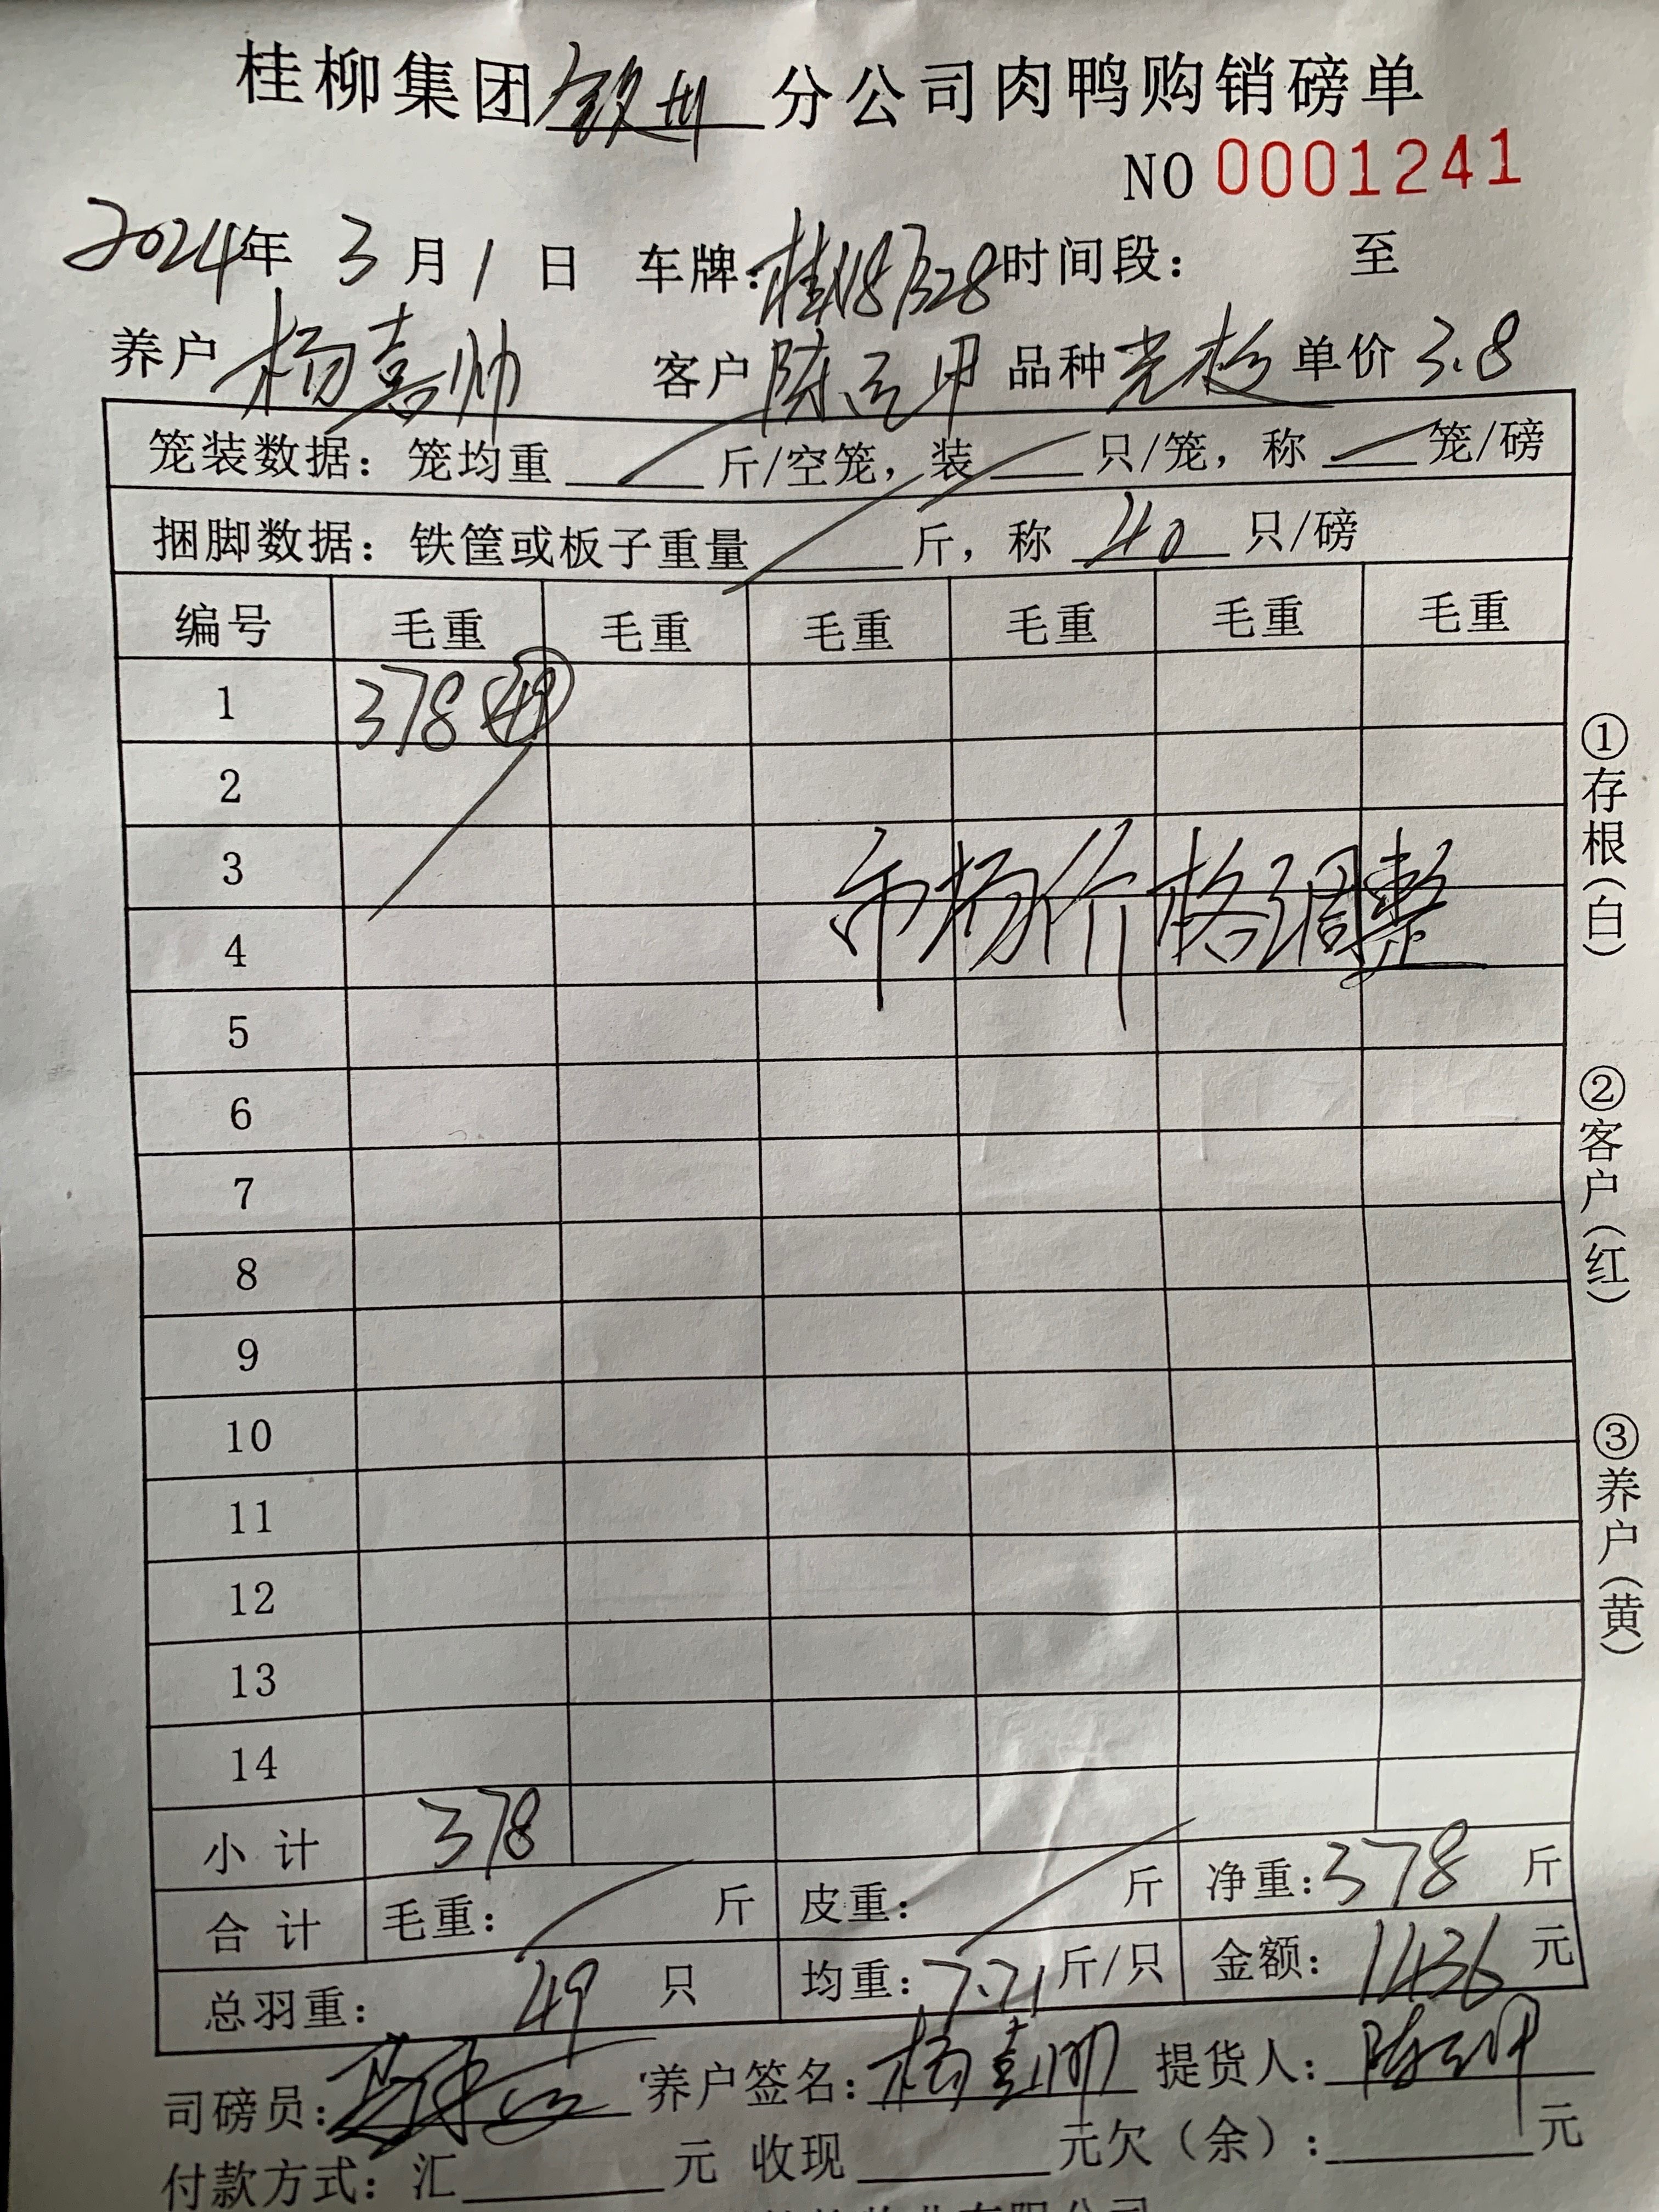 桂柳集团钦州分公司肉鸭购销磅单
NO 0001241
2024年 3月 1日 车牌:桂N8B28 时间段: 至
养户 杨喜帅 客户 陈 甲 品种 单价 3.8
笼装数据:笼均重 斤/空笼,装 只/笼,称 笼/磅
捆脚数据:铁筐或板子重量 斤,称 40 只/磅
编号 毛重 毛重 毛重 毛重 毛重 毛重
1 378 49
2
3
市场价格调整
4
5
6
7
8
9
10
11
12
13
14
小计 378
合计 毛重: 斤 皮重: 斤 净重:378 斤
总羽重: 49 只 均重:7.71 斤/只 金额:1436 元
司磅员: 养户签名:杨喜帅 提货人:陈
付款方式:汇 元 收现 元欠(余): 元
①存根(白)
②客户(红)
③养户(黄)